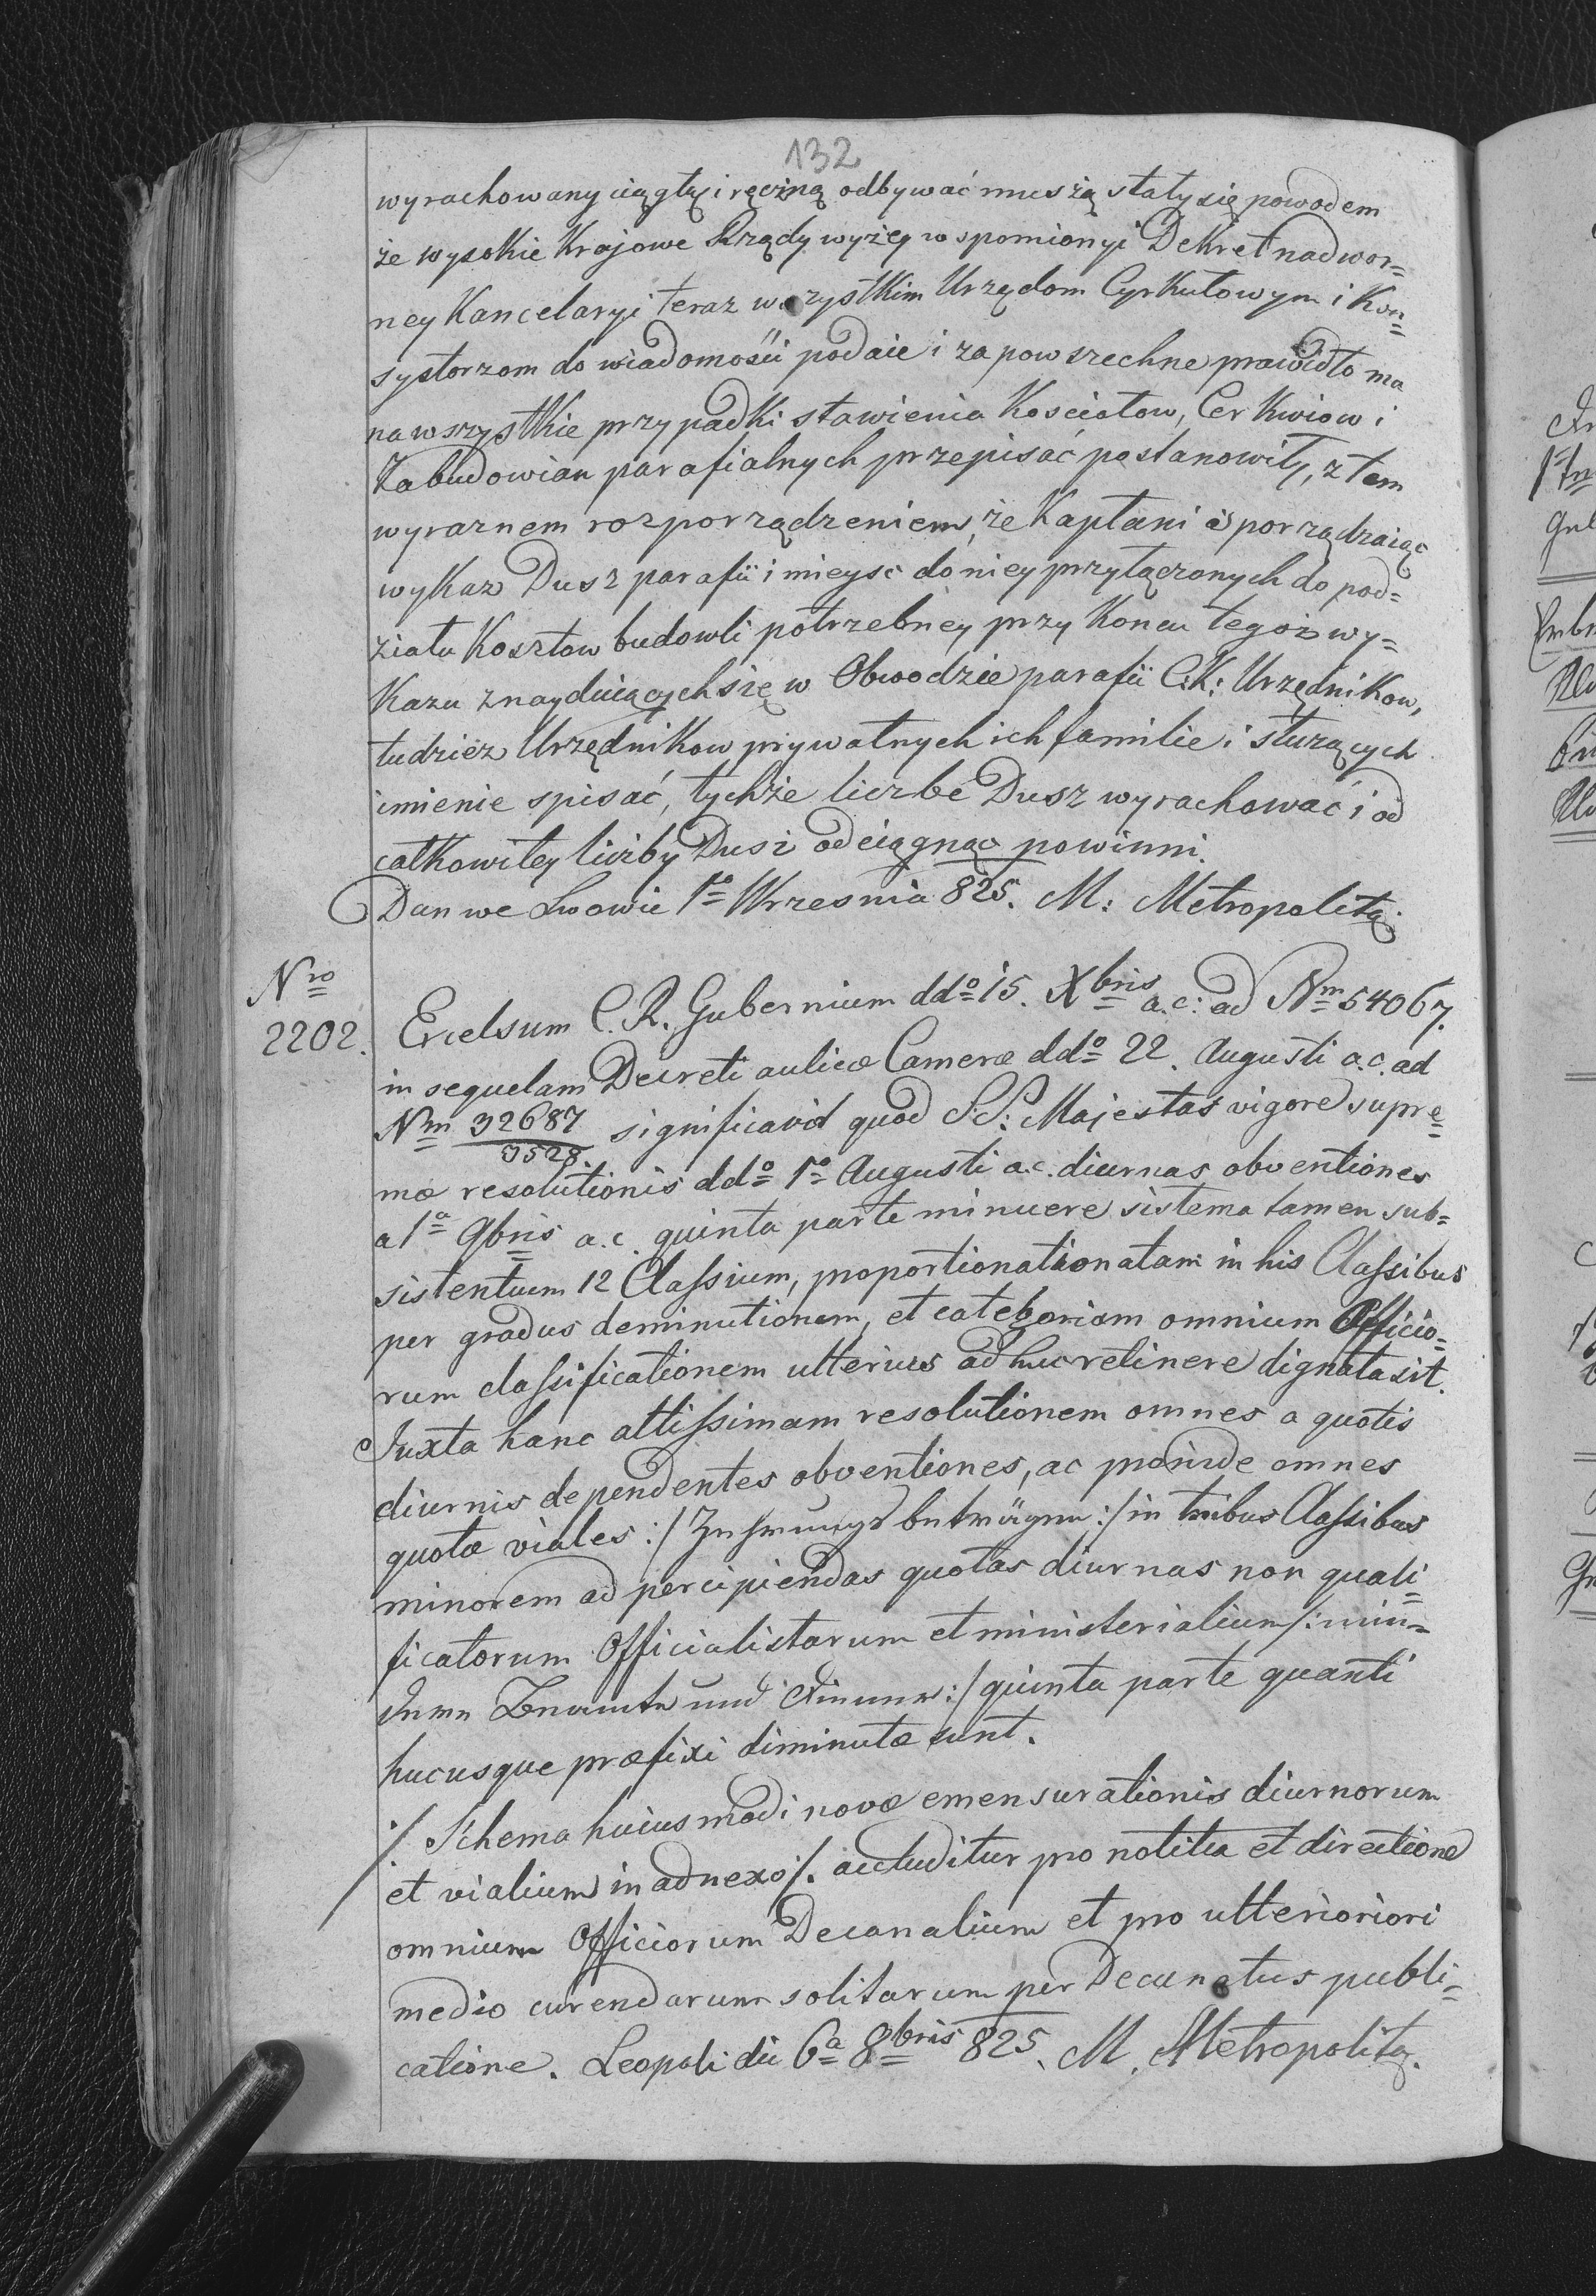 132
wyrachowany ciągłą i ręczną odbywać muszą stały się powodem
że wysokie Krajowe Rządy wyżey wspomionyi Dekret nadwor=
ney Kancelaryi teraz wszystkim Urzędom Cyrkułowym i Kon=
systorzom do wiadomości podaie i za powszechne prawidło ma
na wszystkie przypadki stawienia Kosciołow, Cerkwiow i
Zabudowian parafialnych przepisać postanowiły, z tem
wyraznem rozporządzeniem, że Kapłani sporządzaiąc
wykaz Dusz parafii i mieysc do niey przyłączonych do pod=
ziału Kosztow budowli potrzebney przy Koncu tegoż wy=
Kazu znayduiących się w Obwodzie parafii C: K: Urzędnikow,
tudzież Urzędnikow prywatnych ich familie i służących
imienie spisać, tychże liczbe Dusz wyrachować i od
całkowitey liczby Dusz odciągnąc powinni.
Dan we Lwowie 1º Wrzesnia 825. M: Metropolita.
Nro
2202.
Excelsum C. R. Gubernium ddº 15. Xbris a.c: ad Nm 54067.
in sequelam Decreti aulicæ Cameræ ddº 22. Augusti a.c. ad
Nm 32687/3528 significavit quod S.S: Majestas vigore supre=
mæ resolutionis ddº 1º Augusti a.c. diurnas obventiones
a 1ª 9bris a.c. quinta parte minuere sistema tamen sub=
sistentium 12 Classium, proportionationatam in his Classibus
per gradus deminutionem, et categoriam omnium Officio=
rum classificationem ulterius adhuc retinere dignata sit.
Juxta hanc altissimam resolutionem omnes a quotis
diurnis dependentes obventiones, ac proinde omnes
quotæ viales :/ Zehrungsbeträgen :/ in tribus Classibus
minorem ad percipiendas quotas diurnas non quali=
ficatorum Officialistarum et ministerialium /: min=
dern Beamte und Diener :/ quinta parte quanti
hucusque præfixi diminutæ sunt.
./. Schema huiusmodi novæ emensurationis diurnorum
et vialium in adnexo ./. accluditur pro notitia et directione
omnium Officiorum Decanalium et pro ulterioriori
medio currendarum solitarum per Decanatus publi=
catione. Leopoli die 6ª 8bris 825. M. Metropolita.